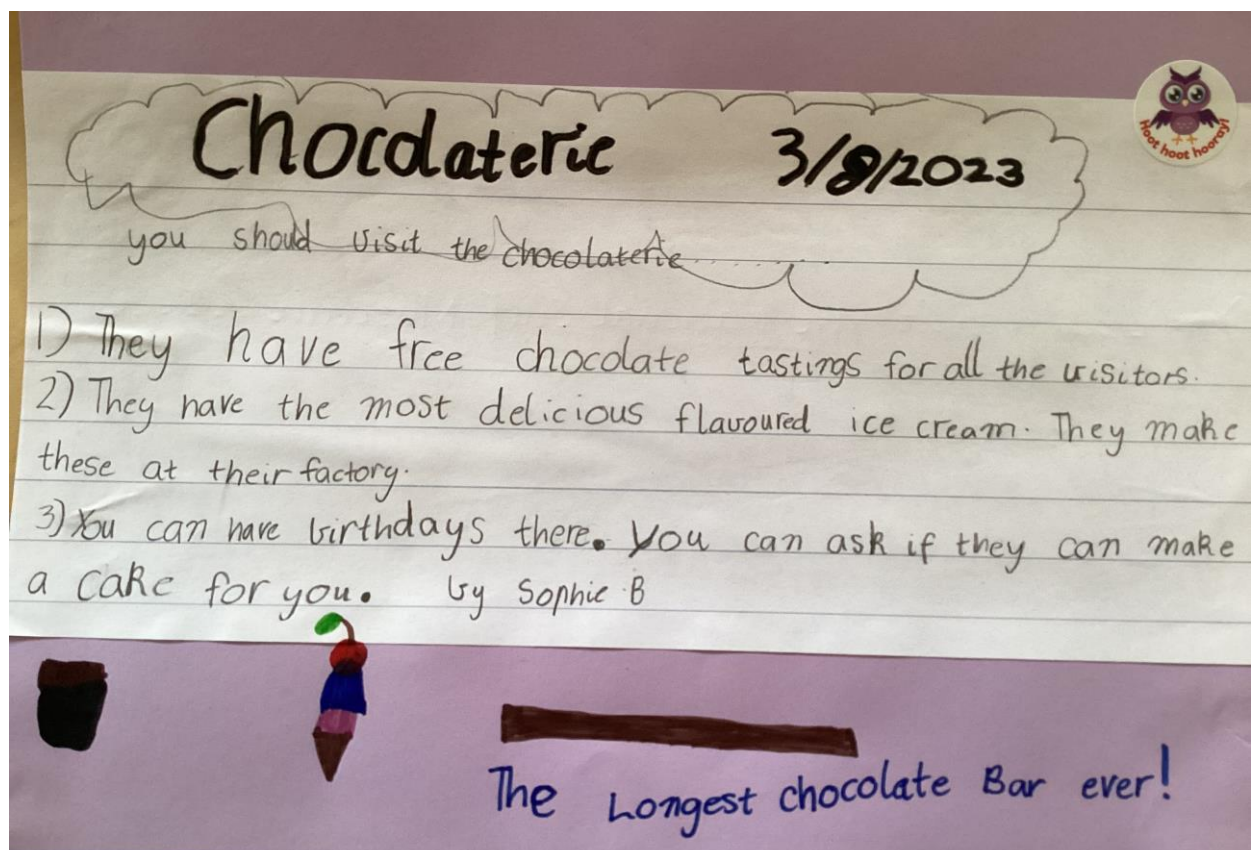 Chocolaterie 3/8/2023
Hoot hoot hooray!
you should visit the chocolaterie.......
1) They have free chocolate tastings for all the visitors.
2) They have the most delicious flavoured ice cream. They make
these at their factory.
3) You can have birthdays there. You can ask if they can make
a cake for you. by Sophie B
The Longest chocolate Bar ever!